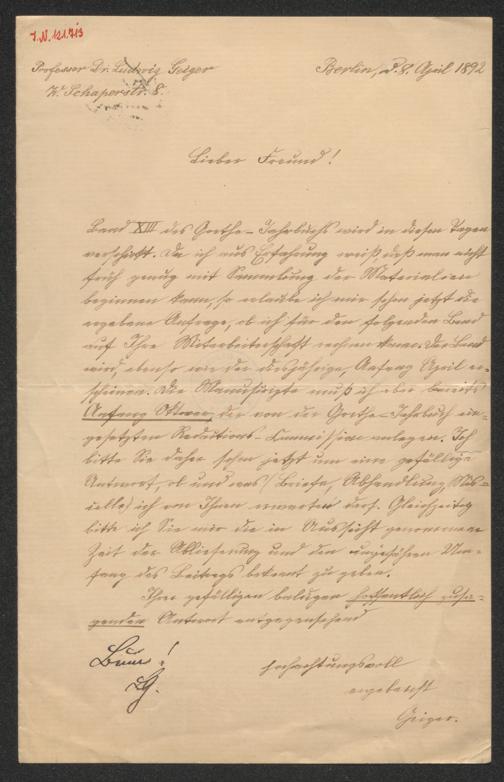 J.N. 121.713
Professor Dr. Ludwig Geiger
W. Schaperstr. 8.
Berlin, d. 8. April 1892
Lieber Freund!
Band XIII des Goethe-Jahrbuchs wird in diesen Tagen
verschickt. Da ich aus Erfahrung weiß, daß man nicht
früh genug mit Sammlung der Materialien
beginnen kann, so erlaube ich mir schon jetzt die
ergebene Anfrage, ob ich für den folgenden Band
auf Ihre Mitarbeiterschaft rechnen kann. Der Band
wird, ebenso wie der diesjährige, Anfang April er-
scheinen. Die Manuscripte muß ich aber bereits
Anfang Oktober, der von der Goethe-Jahrbuch ein-
gesetzten Redactions-Commission vorlegen. Ich
bitte Sie daher schon jetzt um eine gefällige
Antwort, ob und was (Briefe, Abhandlung, Mis-
cellen) ich von Ihnen erwarten darf. Gleichzeitig
bitte ich Sie mir die in Aussicht genommene
Zeit der Ablieferung und den ungefähren Um-
fang des Beitrags bekannt zu geben.
Ihrer gefälligen baldigen hoffentlich zusa-
genden Antwort entgegensehend
hochachtungsvoll
ergebenst
Geiger.
LG.